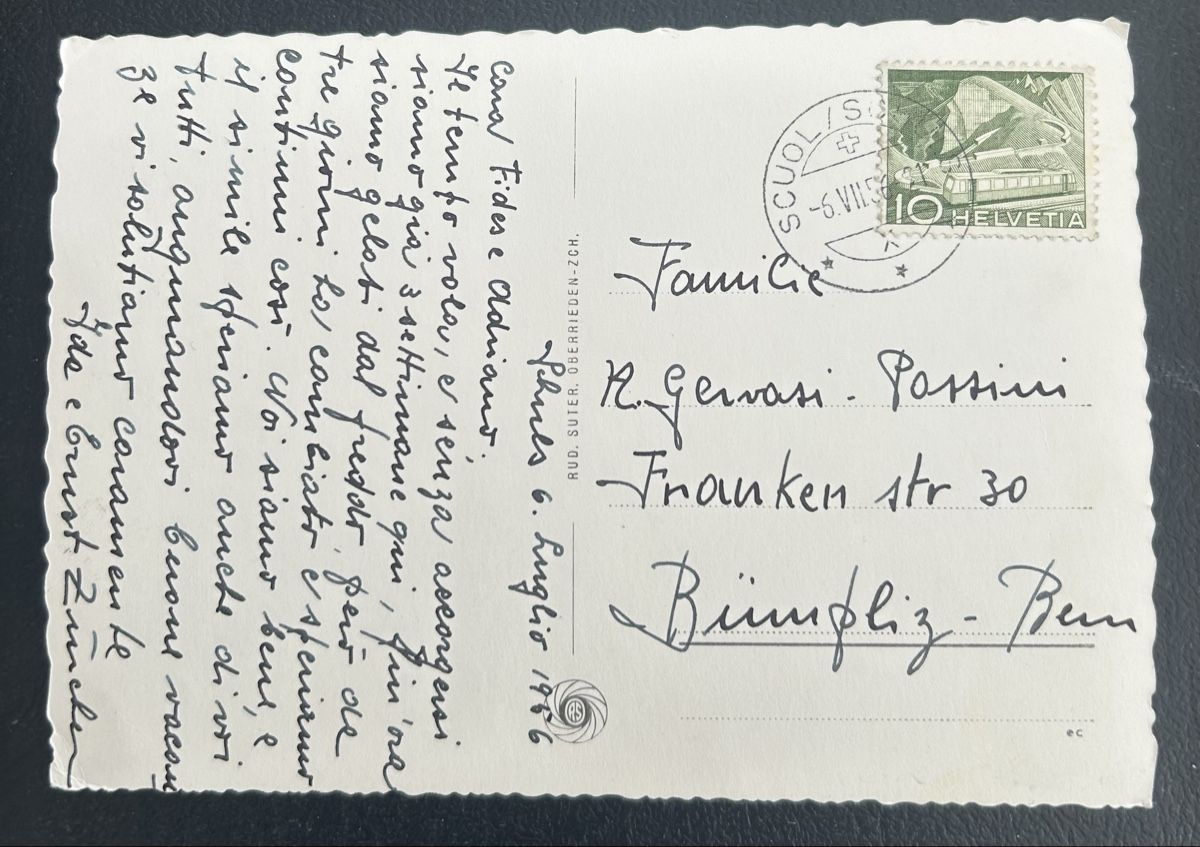 Schuls 6. Luglio 1956
Cara Fides e Adriano,
Il tempo vola, e senza accorgersi
siamo già 3 settimane qui, fin'ora
siamo gelati dal freddo, però da
tre giorni ha cambiato e speriamo
continui così. Noi siamo bene, e
il simile speriamo anche di voi
tutti, augurandovi buone vacan
ze vi salutiamo caramente
Ida e Ernst Zürcher
RUD. SUTER, OBERRIEDEN-ZCH.
SCUOL/S
-6.VII.5
10 HELVETIA
Familie
R. Gervasi - Possini
Frankenstr 30
Bümpliz - Bern
ec